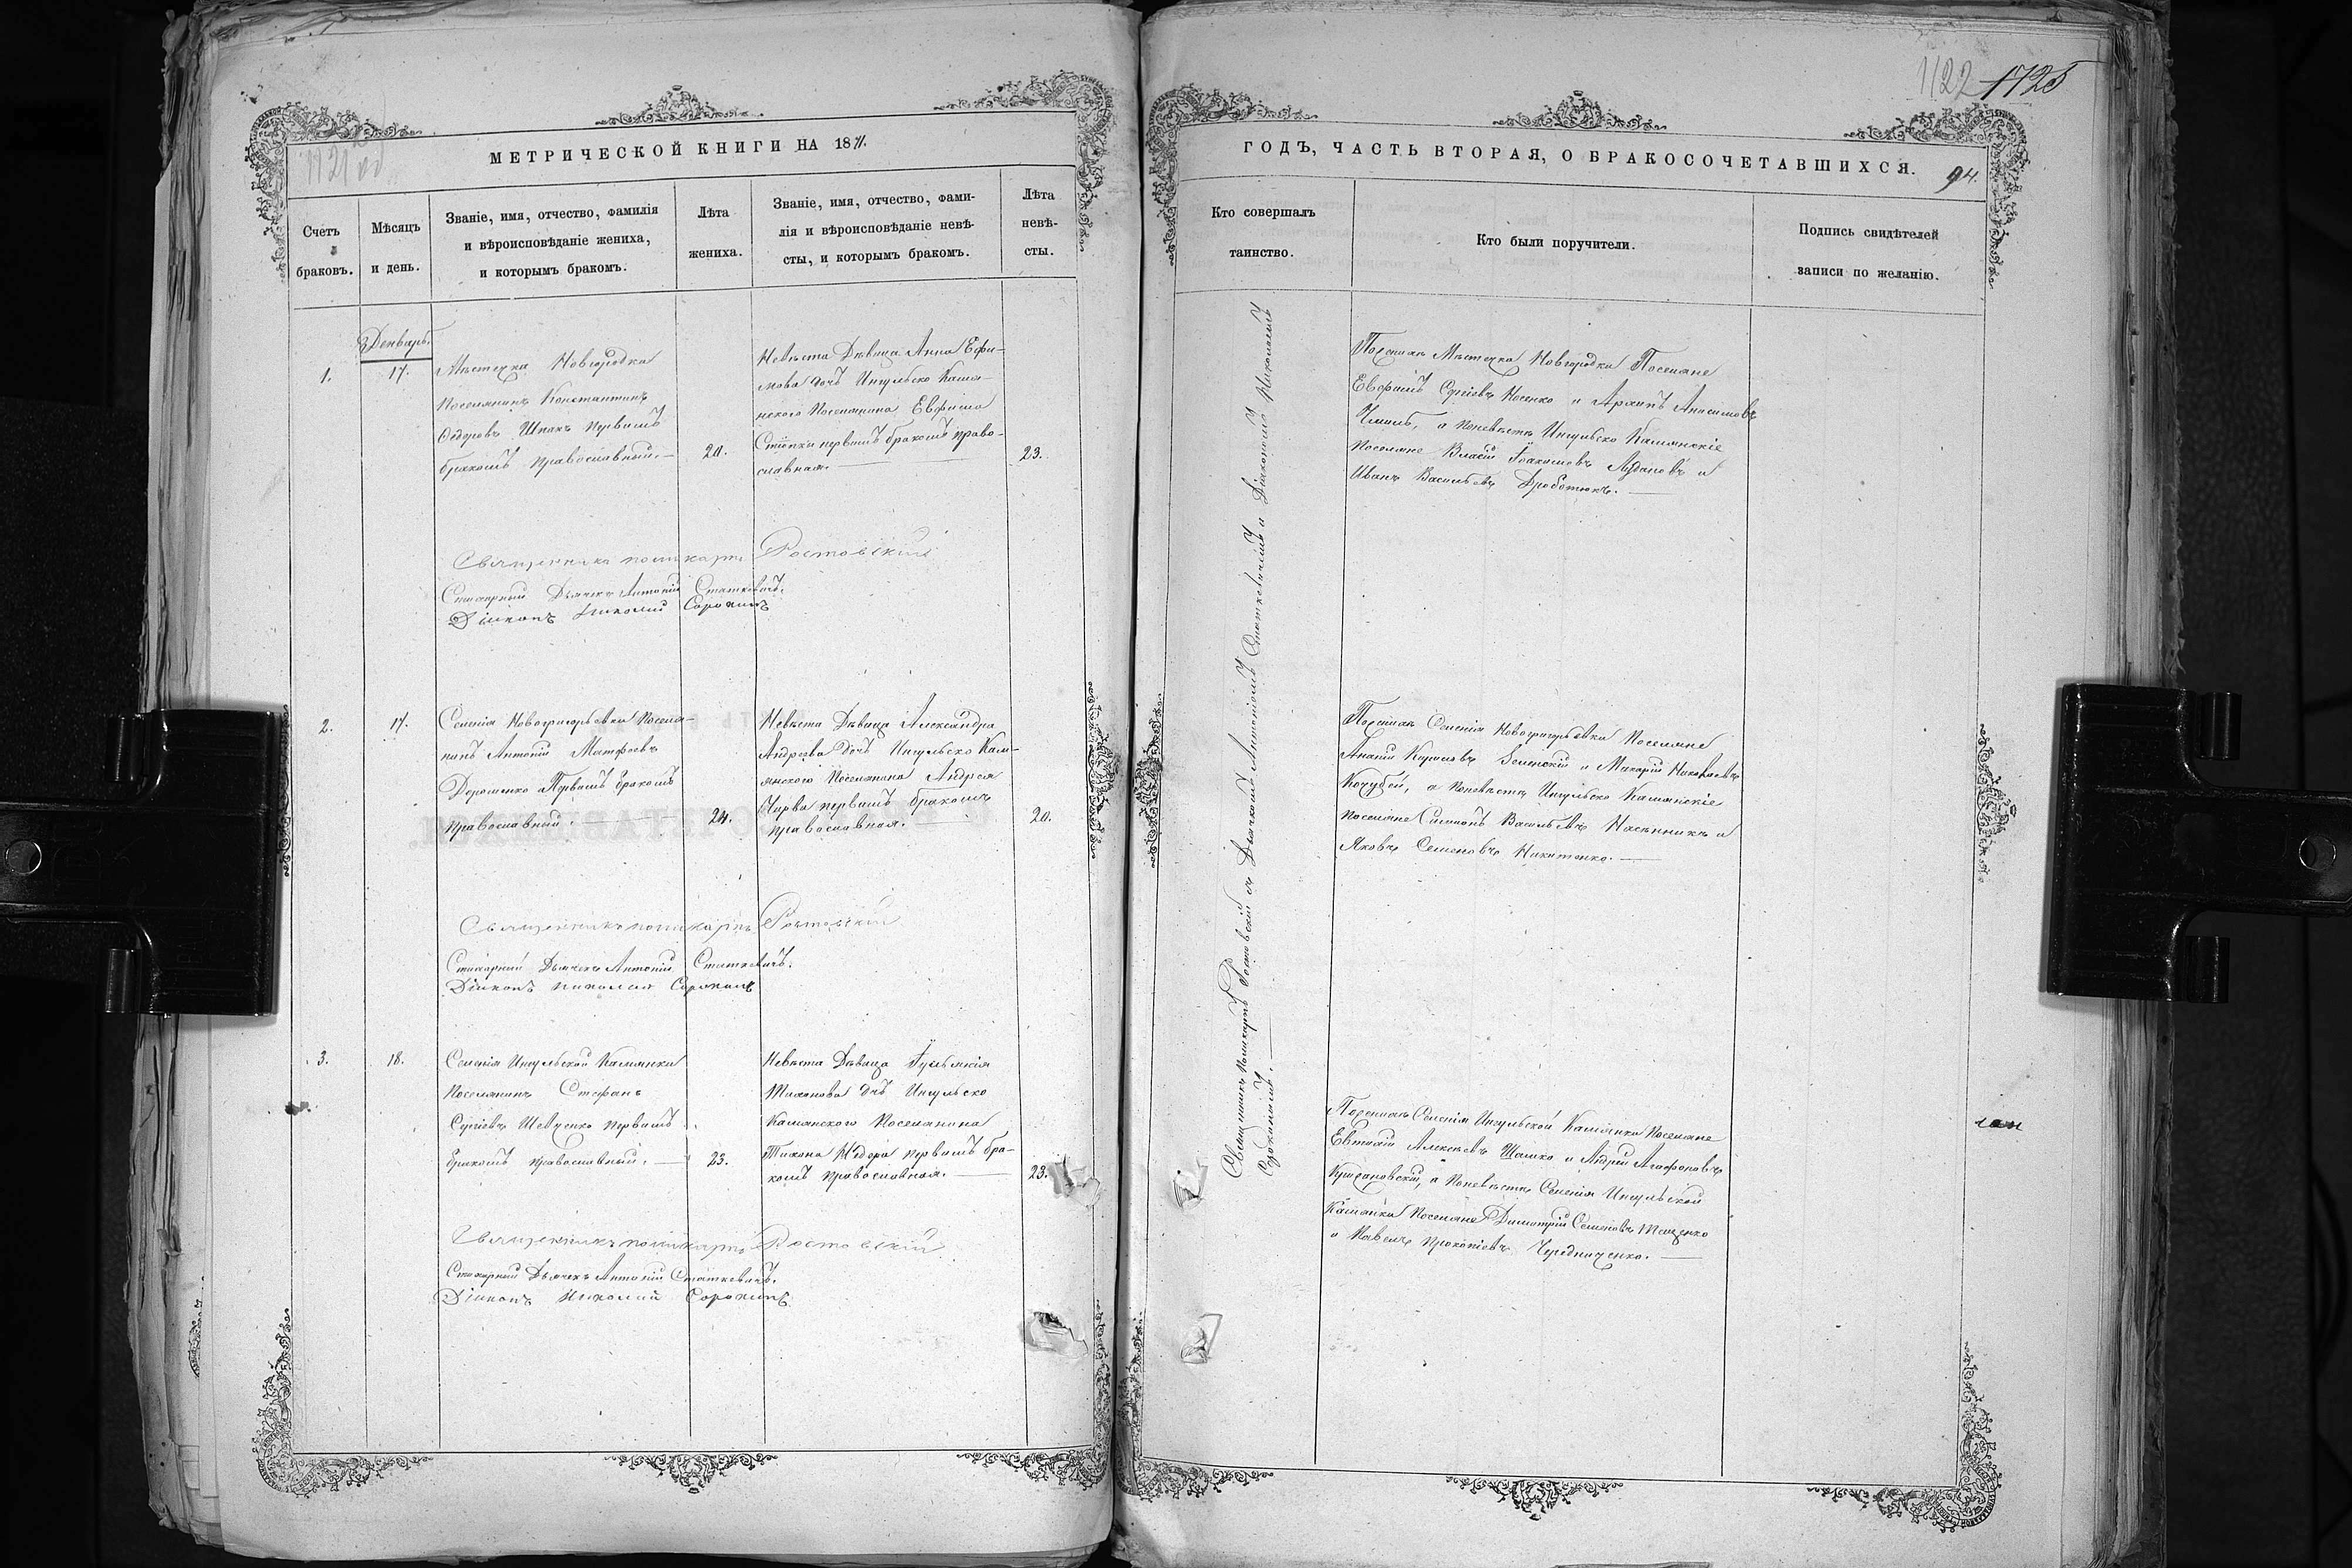 1122 1725
1121 об
МЕТРИЧЕСКОЙ КНИГИ НА 1871.
Счетъ браковъ.
Мѣсяцъ и день.
Званіе, имя, отчество, фамилія
и вѣроисповѣданіе жениха,
и которымъ бракомъ.
Лѣта жениха.
Званіе, имя, отчество, фами-
лія и вѣроисповѣданіе невѣ-
сты, и которымъ бракомъ.
Лѣта
невѣ-
сты.
1.
17.
Мѣстечка Новгородки
Поселянинъ Константинъ
Ѳедоровъ Шпакъ первымъ
бракомъ православный.
20.
Невѣста Дѣвица Анна Ефи-
мова дочь Ингульско Камя-
нского Поселянина Евфима
первымъ бракомъ право-
славная.
23.
Священникъ поликарпъ Ростовскій
Стихарный Дьячекъ Антоній Статкевичъ.
Діяконъ Николай Сорокинъ
2.
17.
Селенія Новогригорьевки Поселя-
нинъ Антоній Матфеевъ
Дорошенко Первымъ бракомъ
православный.
24.
Невѣста Дѣвица Александра
Андреева дочь Ингульско Кам-
янского Поселянина Андрея
Чирва первымъ бракомъ
православная.
20.
Священникъ поликарпъ Ростовскій
Стихарный Дьячекъ Антоній Статкевичъ.
Діяконъ Николай Сорокинъ
3.
18.
Селенія Ингульской Камянки
Поселянинъ Стефанъ
Сергіевъ Шевченко первымъ
бракомъ православный.
23.
Невѣста Дѣвица
Тихонова дочь Ингульско
Камянского Поселянина
Тихона первымъ бра-
комъ православная.
23.
Священникъ поликарпъ Ростовскій
Стихарный Дьячекъ Антоній Статкевичъ.
Діяконъ Николай Сорокинъ
ГОДЪ, ЧАСТЬ ВТОРАЯ, О БРАКОСОЧЕТАВШИХСЯ.
94.
Кто совершалъ
таинство.
Кто были поручители.
Подпись свидѣтелей
записи по желанію.
Священникъ Поликарпъ Ростовскій съ Дьячкомъ Антоніемъ Статкевичемъ и Діякономъ Николаемъ
Сорокинымъ.
Поженихѣ Мѣстечка Новгородки Поселяне
Евфимъ Сергіевъ Носенко и Архипъ Анисимовъ
Чмиль, а поневѣстѣ Ингульско Камянскіе
поселяне Власій и
Иванъ Васильевъ Дроботюкъ.
Поженихѣ Селенія Новогригорьевки Поселяне
Ананій Кириловъ Зеленскій и Макарій Николаевъ
Кочубей, а поневѣстѣ Ингульско Камянскіе
поселяне Симеонъ Васильевъ и
Яковъ Семеновъ Никитенко.
Поженихѣ Селенія Ингульской Камянки Поселяне
Евтихій Алексѣевъ Шамко и Андрей Агафоновъ
а поневѣстѣ Селенія Ингульской
Камянки Поселяне Димитрій Семеновъ Тещенко
и Павелъ Прокопіевъ Чередниченко.